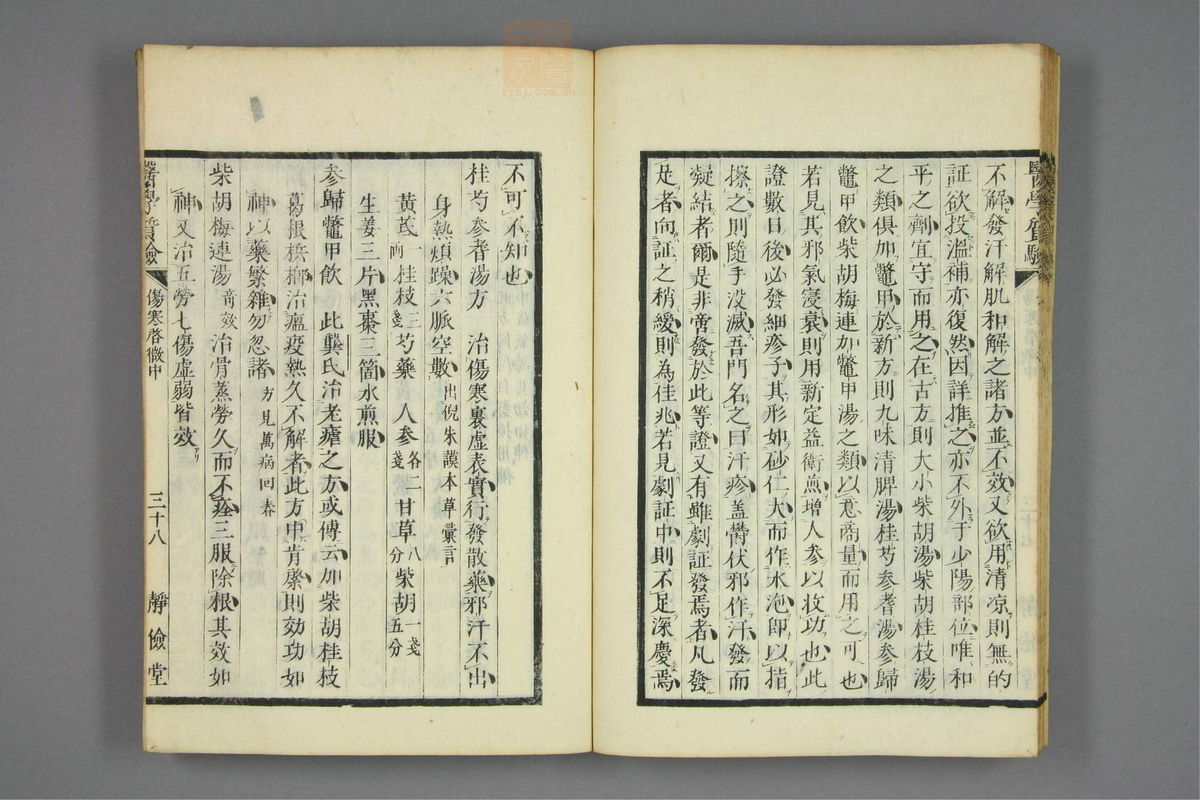 不解發汗解肌和解之諸方並不效又欲用清凉則無的
証欲投溫補亦復然因詳推之亦不外于少陽部位唯和
平之劑宜守而用之在古方則大小柴胡湯柴胡桂枝湯
之類俱加鼈甲於新方則九味清脾湯桂芍參耆湯參歸
鼈甲飲柴胡梅連加鼈甲湯之類以意商量而用之可也
若見其邪氣寖衰則用新定益衛煎增人參以收功也此
證數日後必發細疹子其形如砂仁大而作水泡卽以指
擦之則隨手没滅吾門名之曰汗疹盖欝伏邪作汗發而
凝結者爾是非啻發於此等證又有雖劇証發焉者凡發
足者向証之稍緩則為佳兆若見劇証中則不足深慶焉
不可不知也
桂芍參耆湯方 治傷寒裏虛表實行發散藥邪汗不出
身熱煩躁六脈空數出倪朱謨本草彙言
黃芪一兩桂枝三戔芍藥人參各二戔甘草八分柴胡一戔五分
生姜三片黑棗三箇水煎服
參歸鼈甲飲 此龔氏治老瘧之方或傳云加柴胡桂枝
葛根檳榔治瘟疫熱久不解者此方中肯綮則効功如
神以藥繁雜勿忽諸方見萬病回春
柴胡梅連湯奇效 治骨蒸勞久而不痊三服除根其效如
神又治五勞七傷虛弱皆效
傷寒啓微中
三十八
靜儉堂